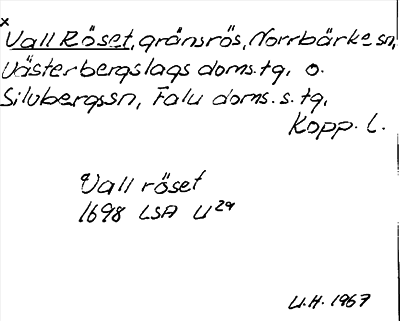 x
Vall Röset, gränsrös, Norrbärke sn,
Västerbergslags doms. tg. o.
Silvbergssn, Falu doms. s. tg,
Kopp. l.
Vall röset
1698 LSA U 29
U.H. 1967